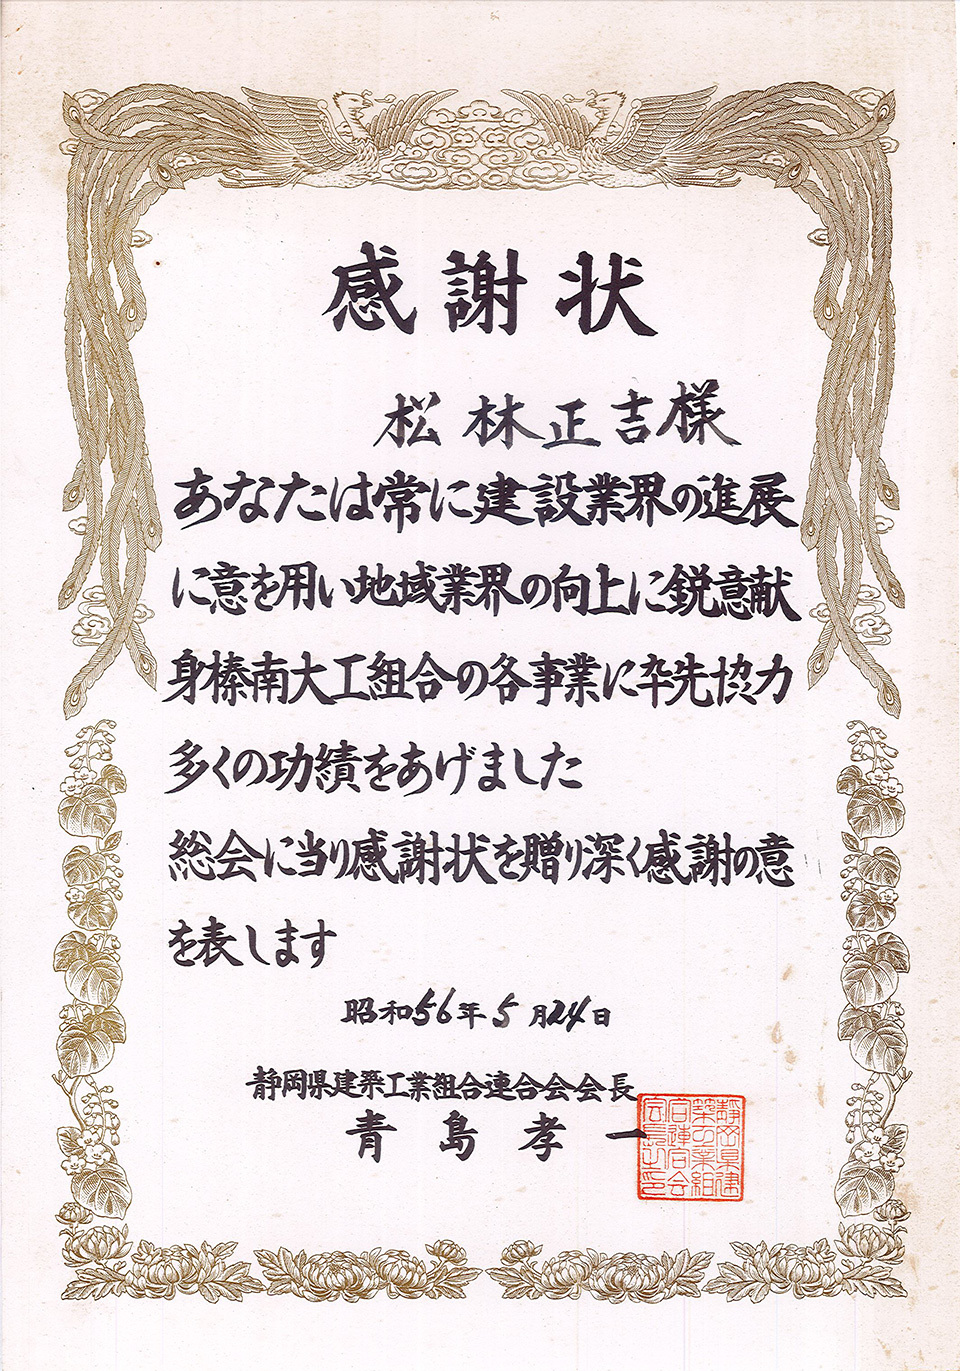 感謝状
松林正吉様
あなたは常に建設業界の進展
に意を用い地域業界の向上に鋭意献
身榛南大工組合の各事業に率先協力
多くの功績をあげました
総会に当り感謝状を贈り深く感謝の意
を表します
昭和56年5月24日
静岡県建築工業組合連合会会長
青島孝一
静岡県建
築工業組
合連合会
会長之印